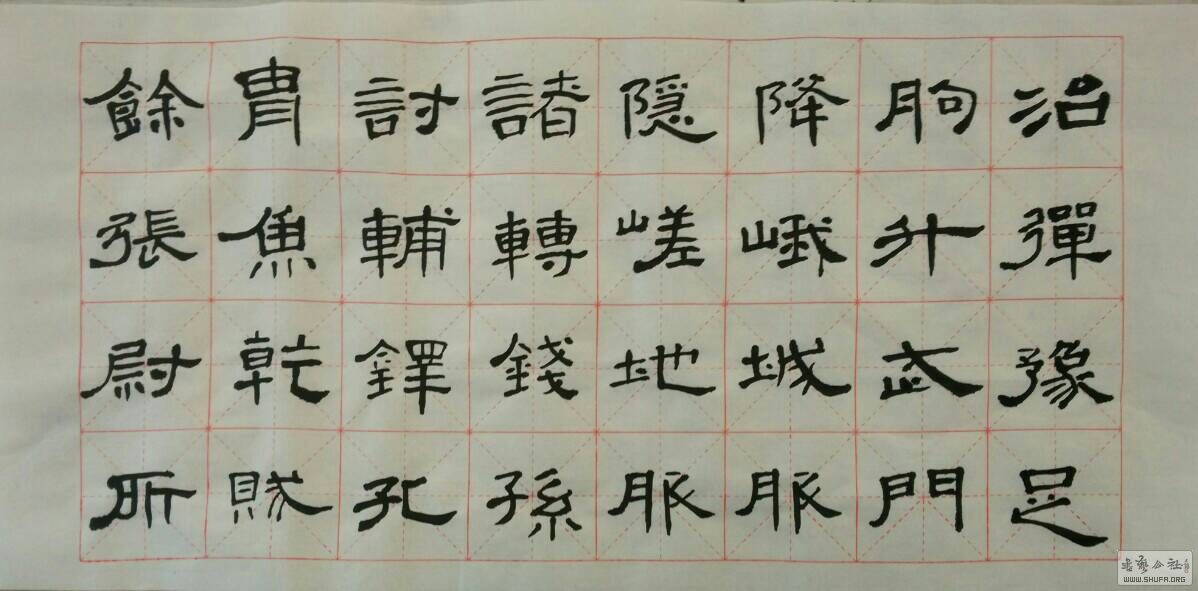 治彈豫足
朐升武門
降峨城服
隐嵯地服
諸轉錢孫
討輔鐸孔
胄魚乾
餘張尉所
WWW.SHUFA.ORG